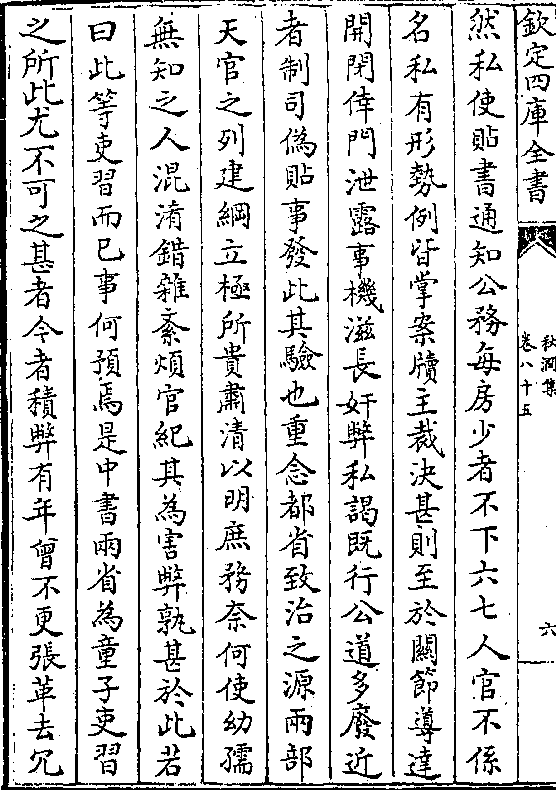 欽定四庫全書
秋澗集
卷八十五
六
然私使貼書通知公務每房少者不下六七人官不係
名私有形勢例皆掌案牘主裁決甚則至於關節導達
開閉倖門泄露事機滋長奸弊私謁既行公道多廢近
者制司偽貼事發此其驗也重念都省致治之源兩部
天官之列建綱立極所貴肅清以明庶務奈何使幼孺
無知之人混淆錯雜紊煩官紀其為害弊孰甚於此若
曰此等吏習而已事何預焉是中書兩省為童子吏習
之所此尤不可之甚者今者積弊有年曾不更張革去冗